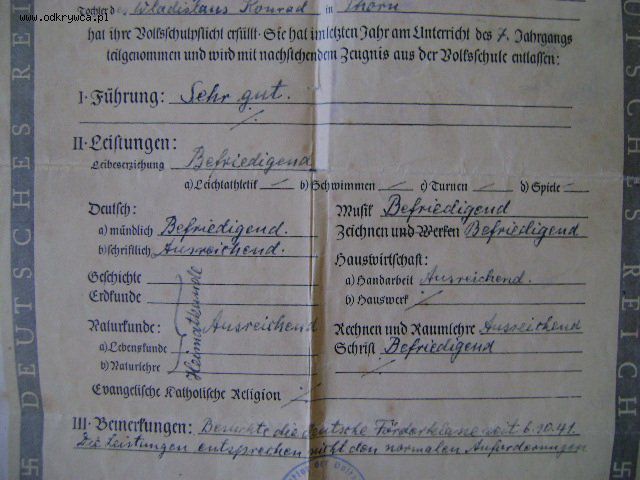 www.odkrywca.pl
Tochter des Wladislaus Konrad in Thorn
hat ihre Volksschulpflicht erfüllt · Sie hat im letzten Jahr am Unterricht des 7. Jahrgangs
teilgenommen und wird mit nachstehendem Zeugnis aus der Volksschule entlassen:
I · Führung: Sehr gut.
II · Leistungen:
Leibeserziehung Befriedigend
a) Leichtathletik — b) Schwimmen — c) Turnen — d) Spiele —
Deutsch:
a) mündlich Befriedigend.
b) schriftlich Ausreichend.
Geschichte
Erdkunde
Naturkunde: Heimatkunde Ausreichend
a) Lebenskunde
b) Naturlehre
Musik Befriedigend
Zeichnen und Werken Befriedigend
Hauswirtschaft:
a) Handarbeit Ausreichend.
b) Hauswerk
Rechnen und Raumlehre Ausreichend
Schrift Befriedigend
Evangelische Katholische Religion
III · Bemerkungen: Besuchte die deutsche Förderklasse seit 6.10.41.
Die Leistungen entsprechen nicht den normalen Anforderungen
DEUTSCHES REI
DEUTSCHES REICH